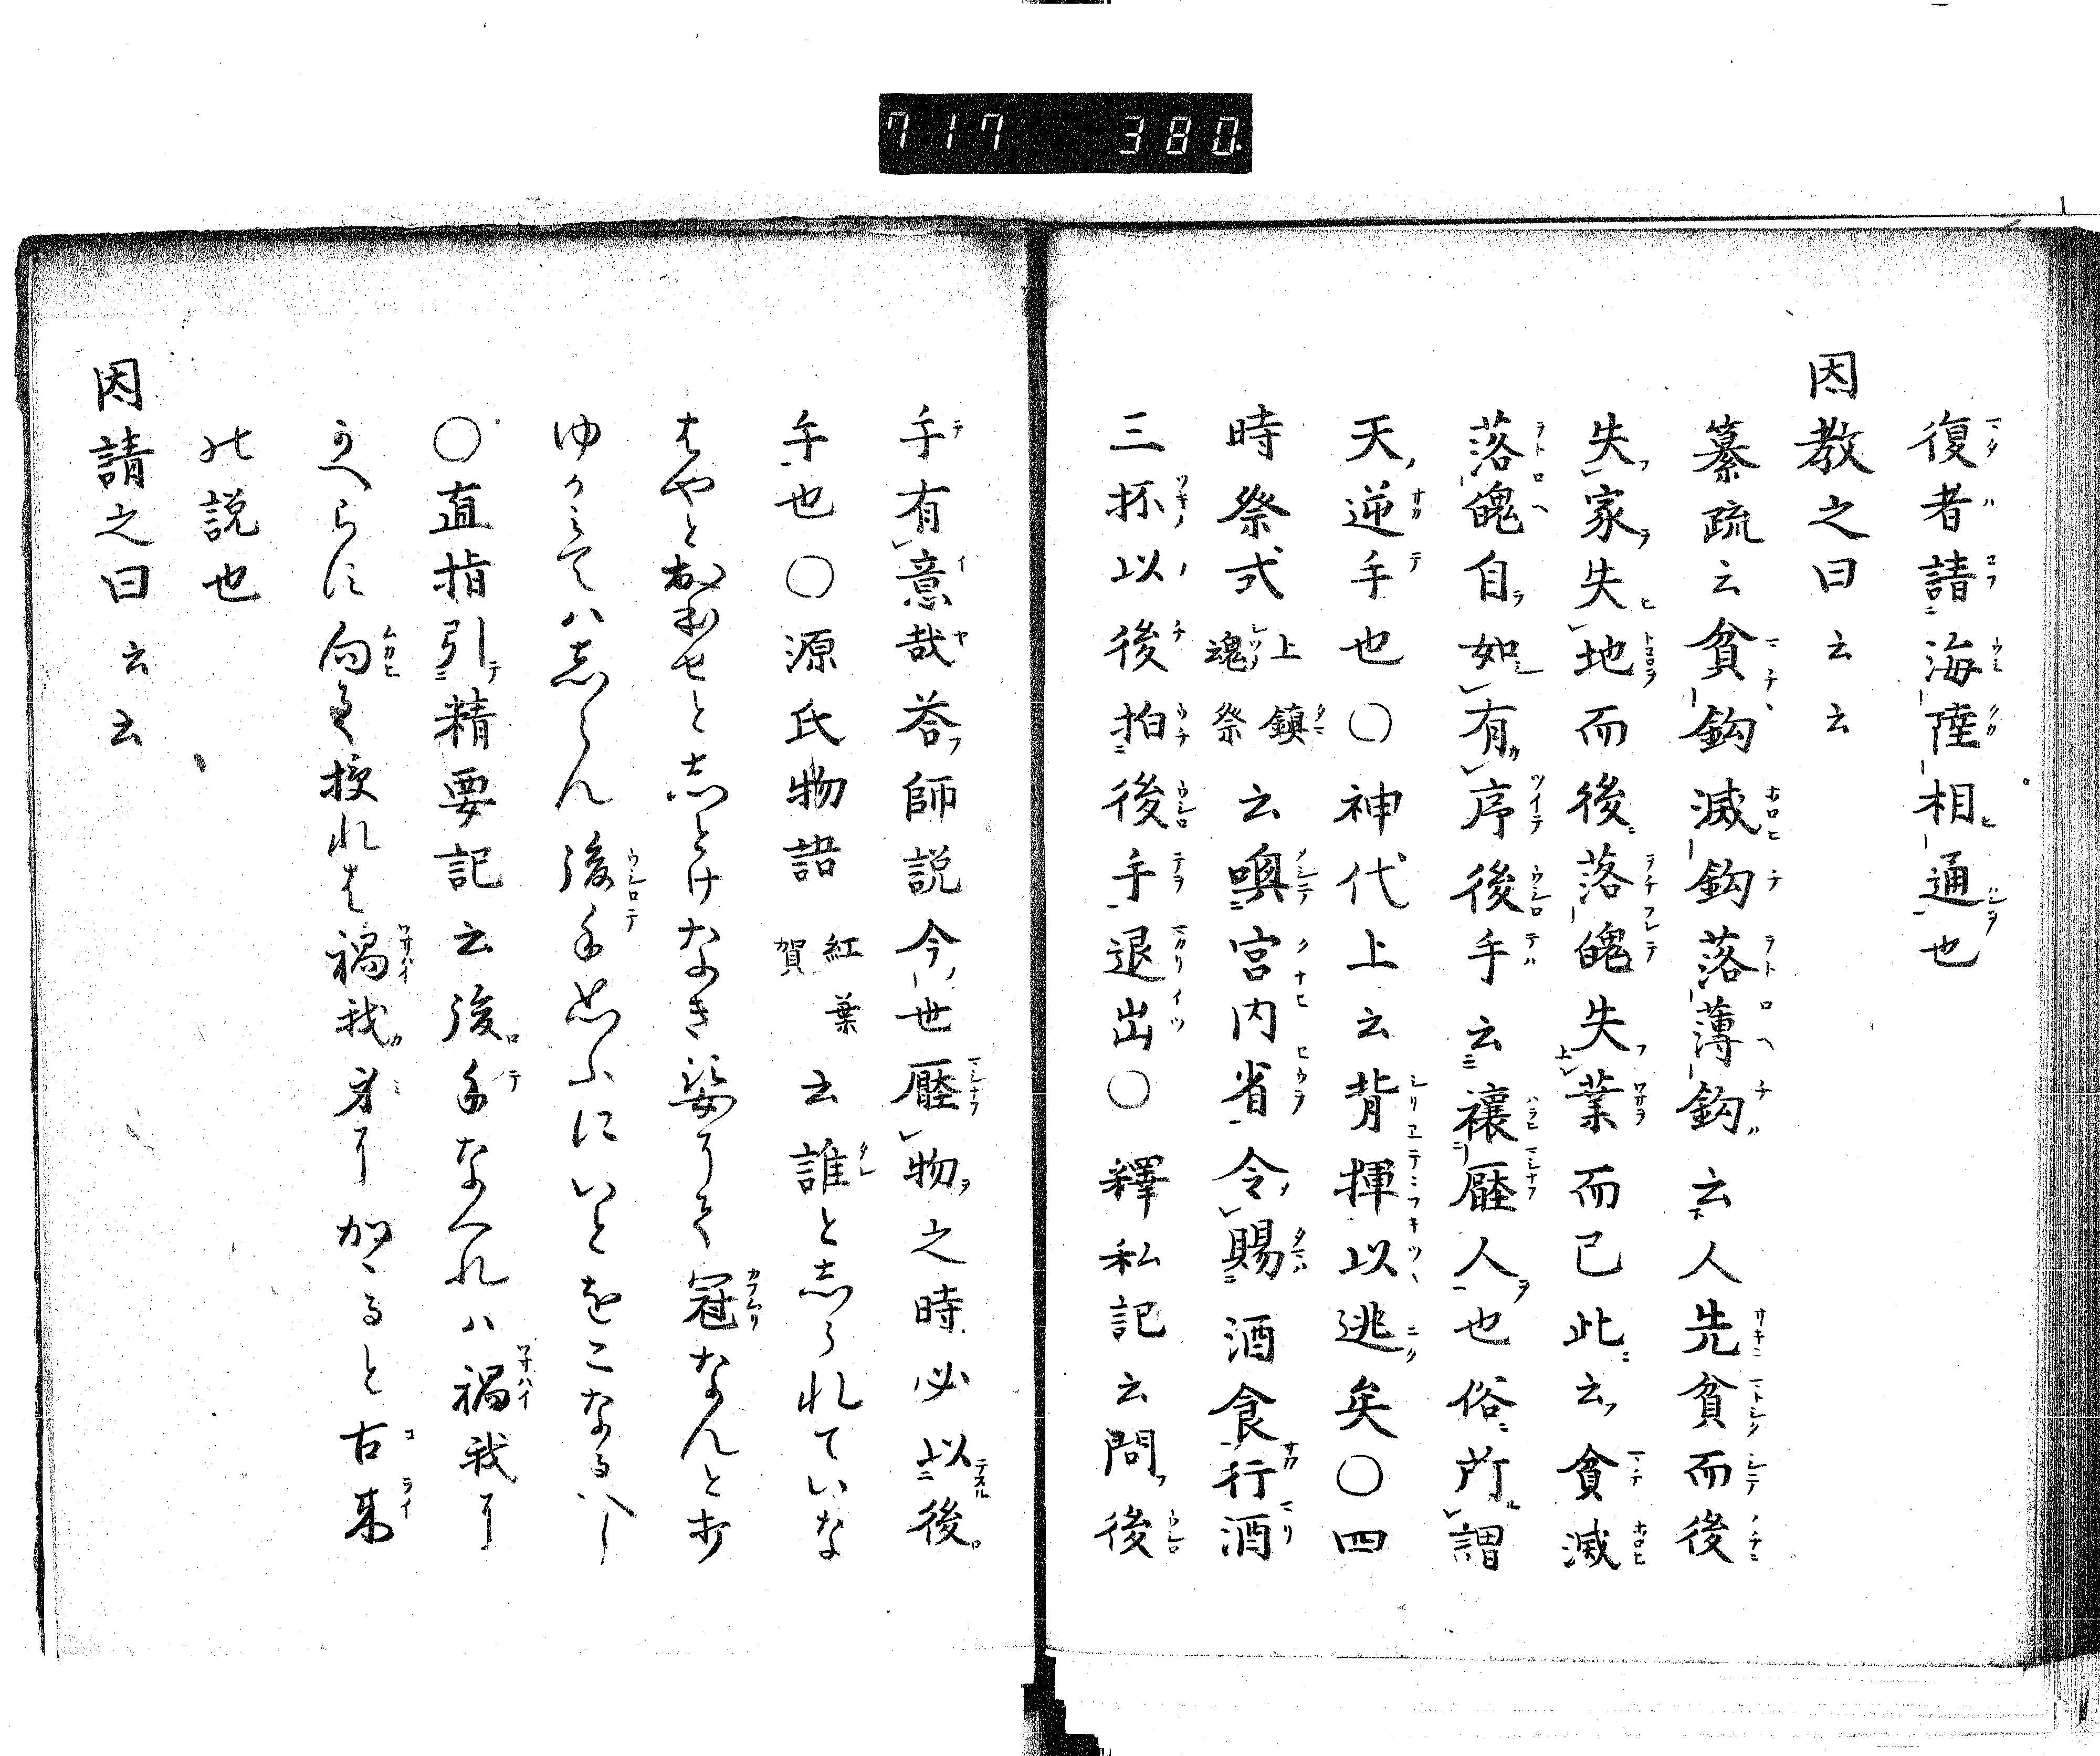 717 380
復者請海陸相通也
因教之曰云云
纂疏云貧鈎滅鈎落薄鈎云人先貧而後
失家失地而後落魄失業而已此云貧滅
落魄自如有序後手云禳壓人也俗所謂
天逆手也○神代上云背揮以逃矣○四
時祭式上鎮魂祭云喚宮内省令賜酒食行酒
三抔以後拍後手退出○釋私記云問後
手有意哉荅師説今世壓物之時必以後
手也○源氏物語紅葉賀云誰と志られていな
はやと おほせと志とけなき姿にて冠なんと
ゆかミてハ志らん後手思ふにいとをこなるへし
○直指引精要記云後手なくれハ禍我に
かへらに向て授れは禍我身にかゝると古来
此説也
因請之曰云云